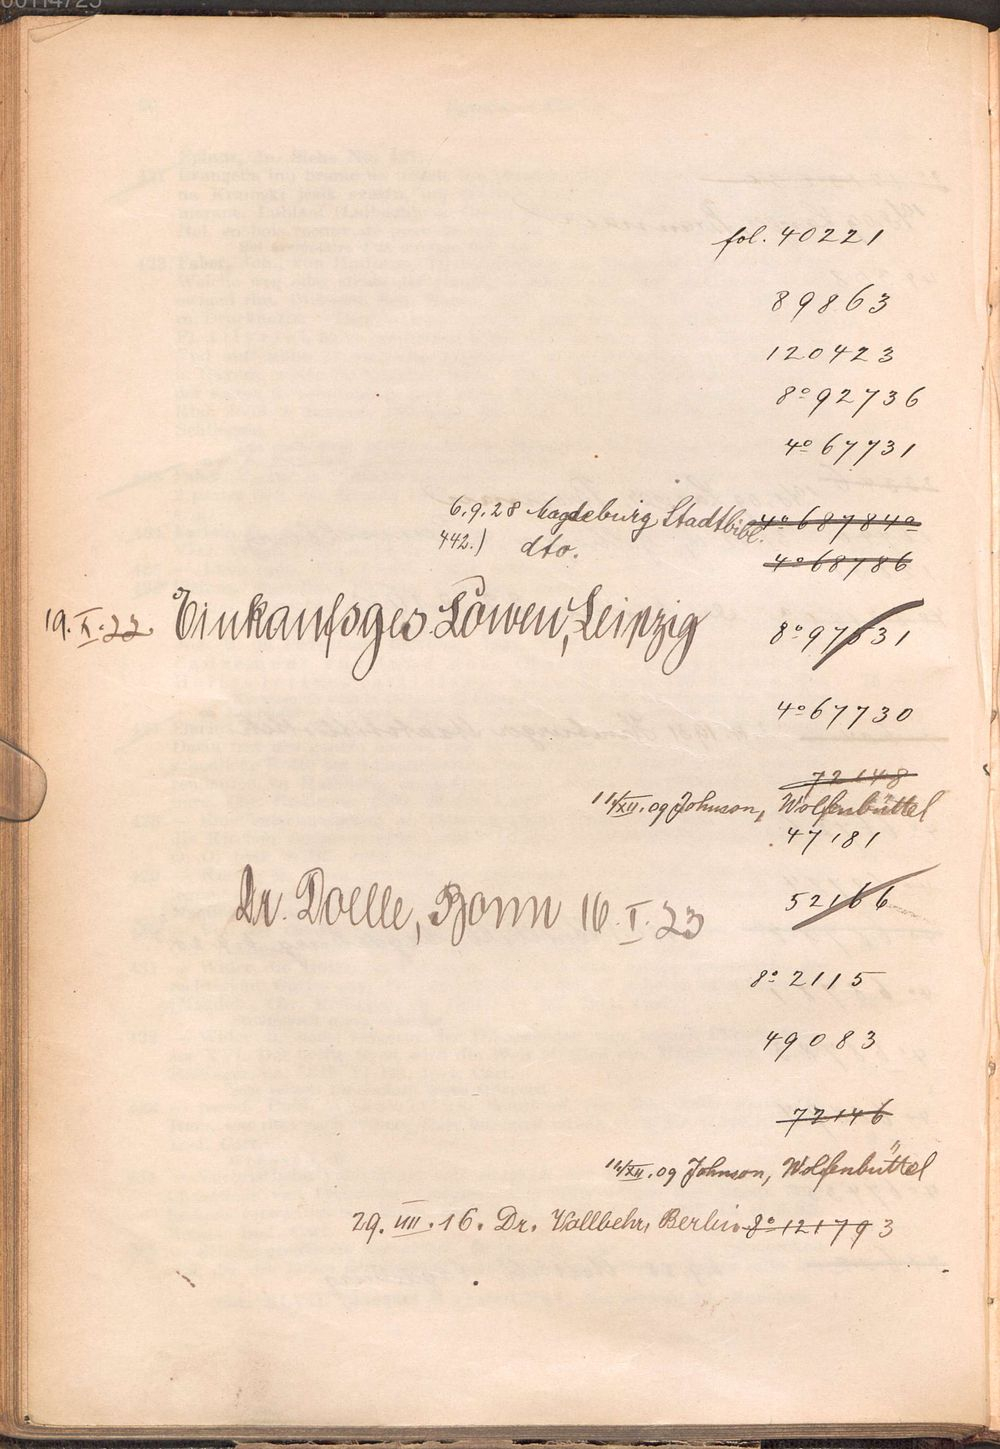 fol. 40221
89863
120423
8º 92736
4º 67731
6.9.28 Magdeburg Stadtbibl. 4º 68784a
442.) dto. 4º 68786
19.X.22. Einkaufsges. Löwen, Leipzig 8º 97631
4º 67730
72148
11/XII.09 Johnson, Wolfenbüttel
47181
Dr. Doelle, Bonn 16.I.23 52166
8º 2115
49083
72146
11/XII.09 Johnson, Wolfenbüttel
29.VIII.16. Dr. Vollbehr, Berlin 8º 121793